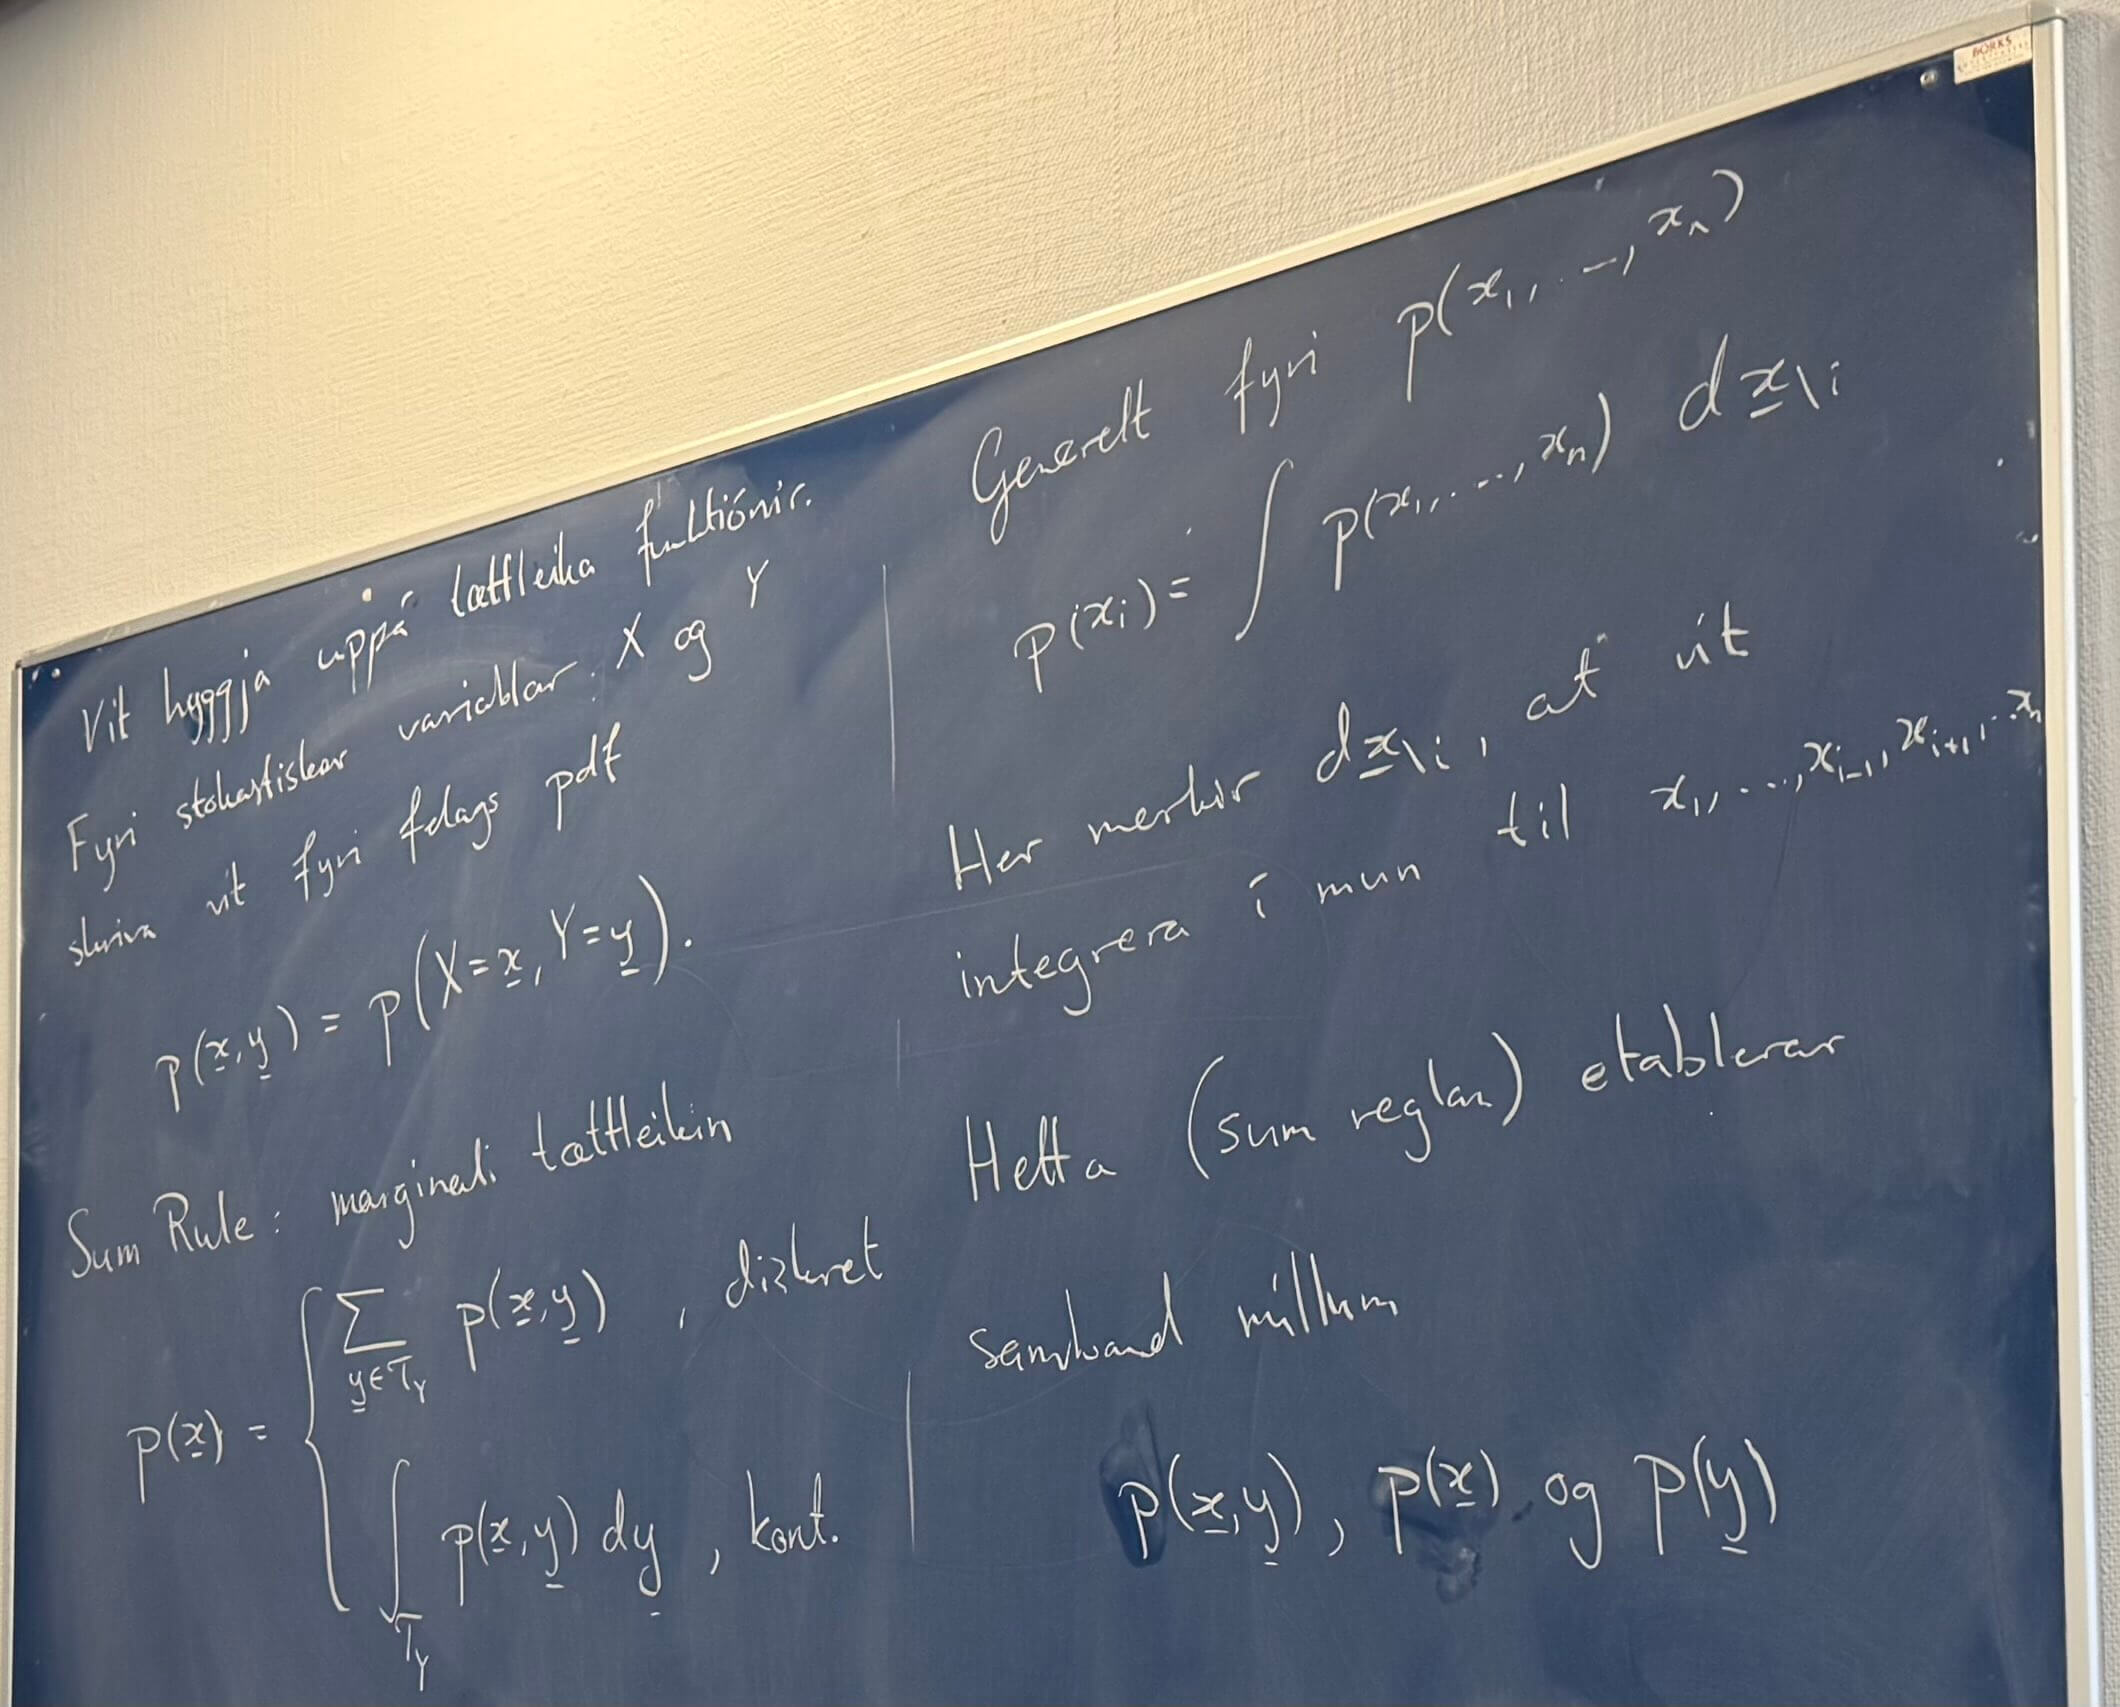 Vit hyggja uppá tættleika funktiónir.
Fyri stokastiskar variablar X og Y
skriva vit fyri felags pdf
p(x̲, y̲) = p(X = x̲, Y = y̲).
Sum Rule: marginali tættleikin
p(x̲) = { ∑_{y̲ ∈ T_Y} p(x̲, y̲) , diskret
∫_{T_Y} p(x̲, y̲) dy̲ , kont.
Generelt fyri p(x₁, ..., xₙ)
p(xᵢ) = ∫ p(x₁, ..., xₙ) dx̲\i
Her merkir dx̲\i, at vit
integrera í mun til x₁, ..., xᵢ₋₁, xᵢ₊₁, ... xₙ
Hetta (sum reglan) etablerar
samband millum
p(x̲, y̲), p(x̲) og p(y̲)
BORKS